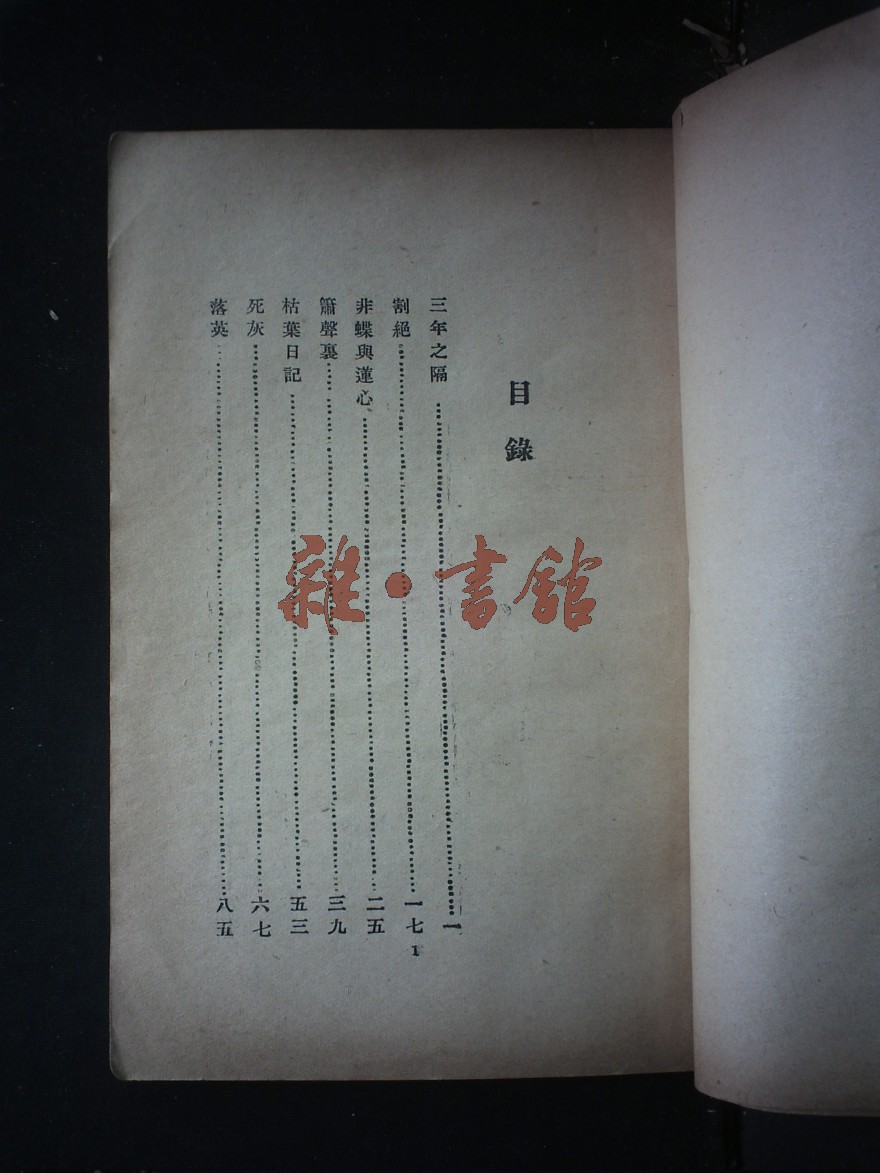 目錄
三年之隔……一
割絕……一七
非蝶與蓮心……二五
簫聲裏……三九
枯葉日記……五三
死灰……六七
落英……八五
1
雜·書館